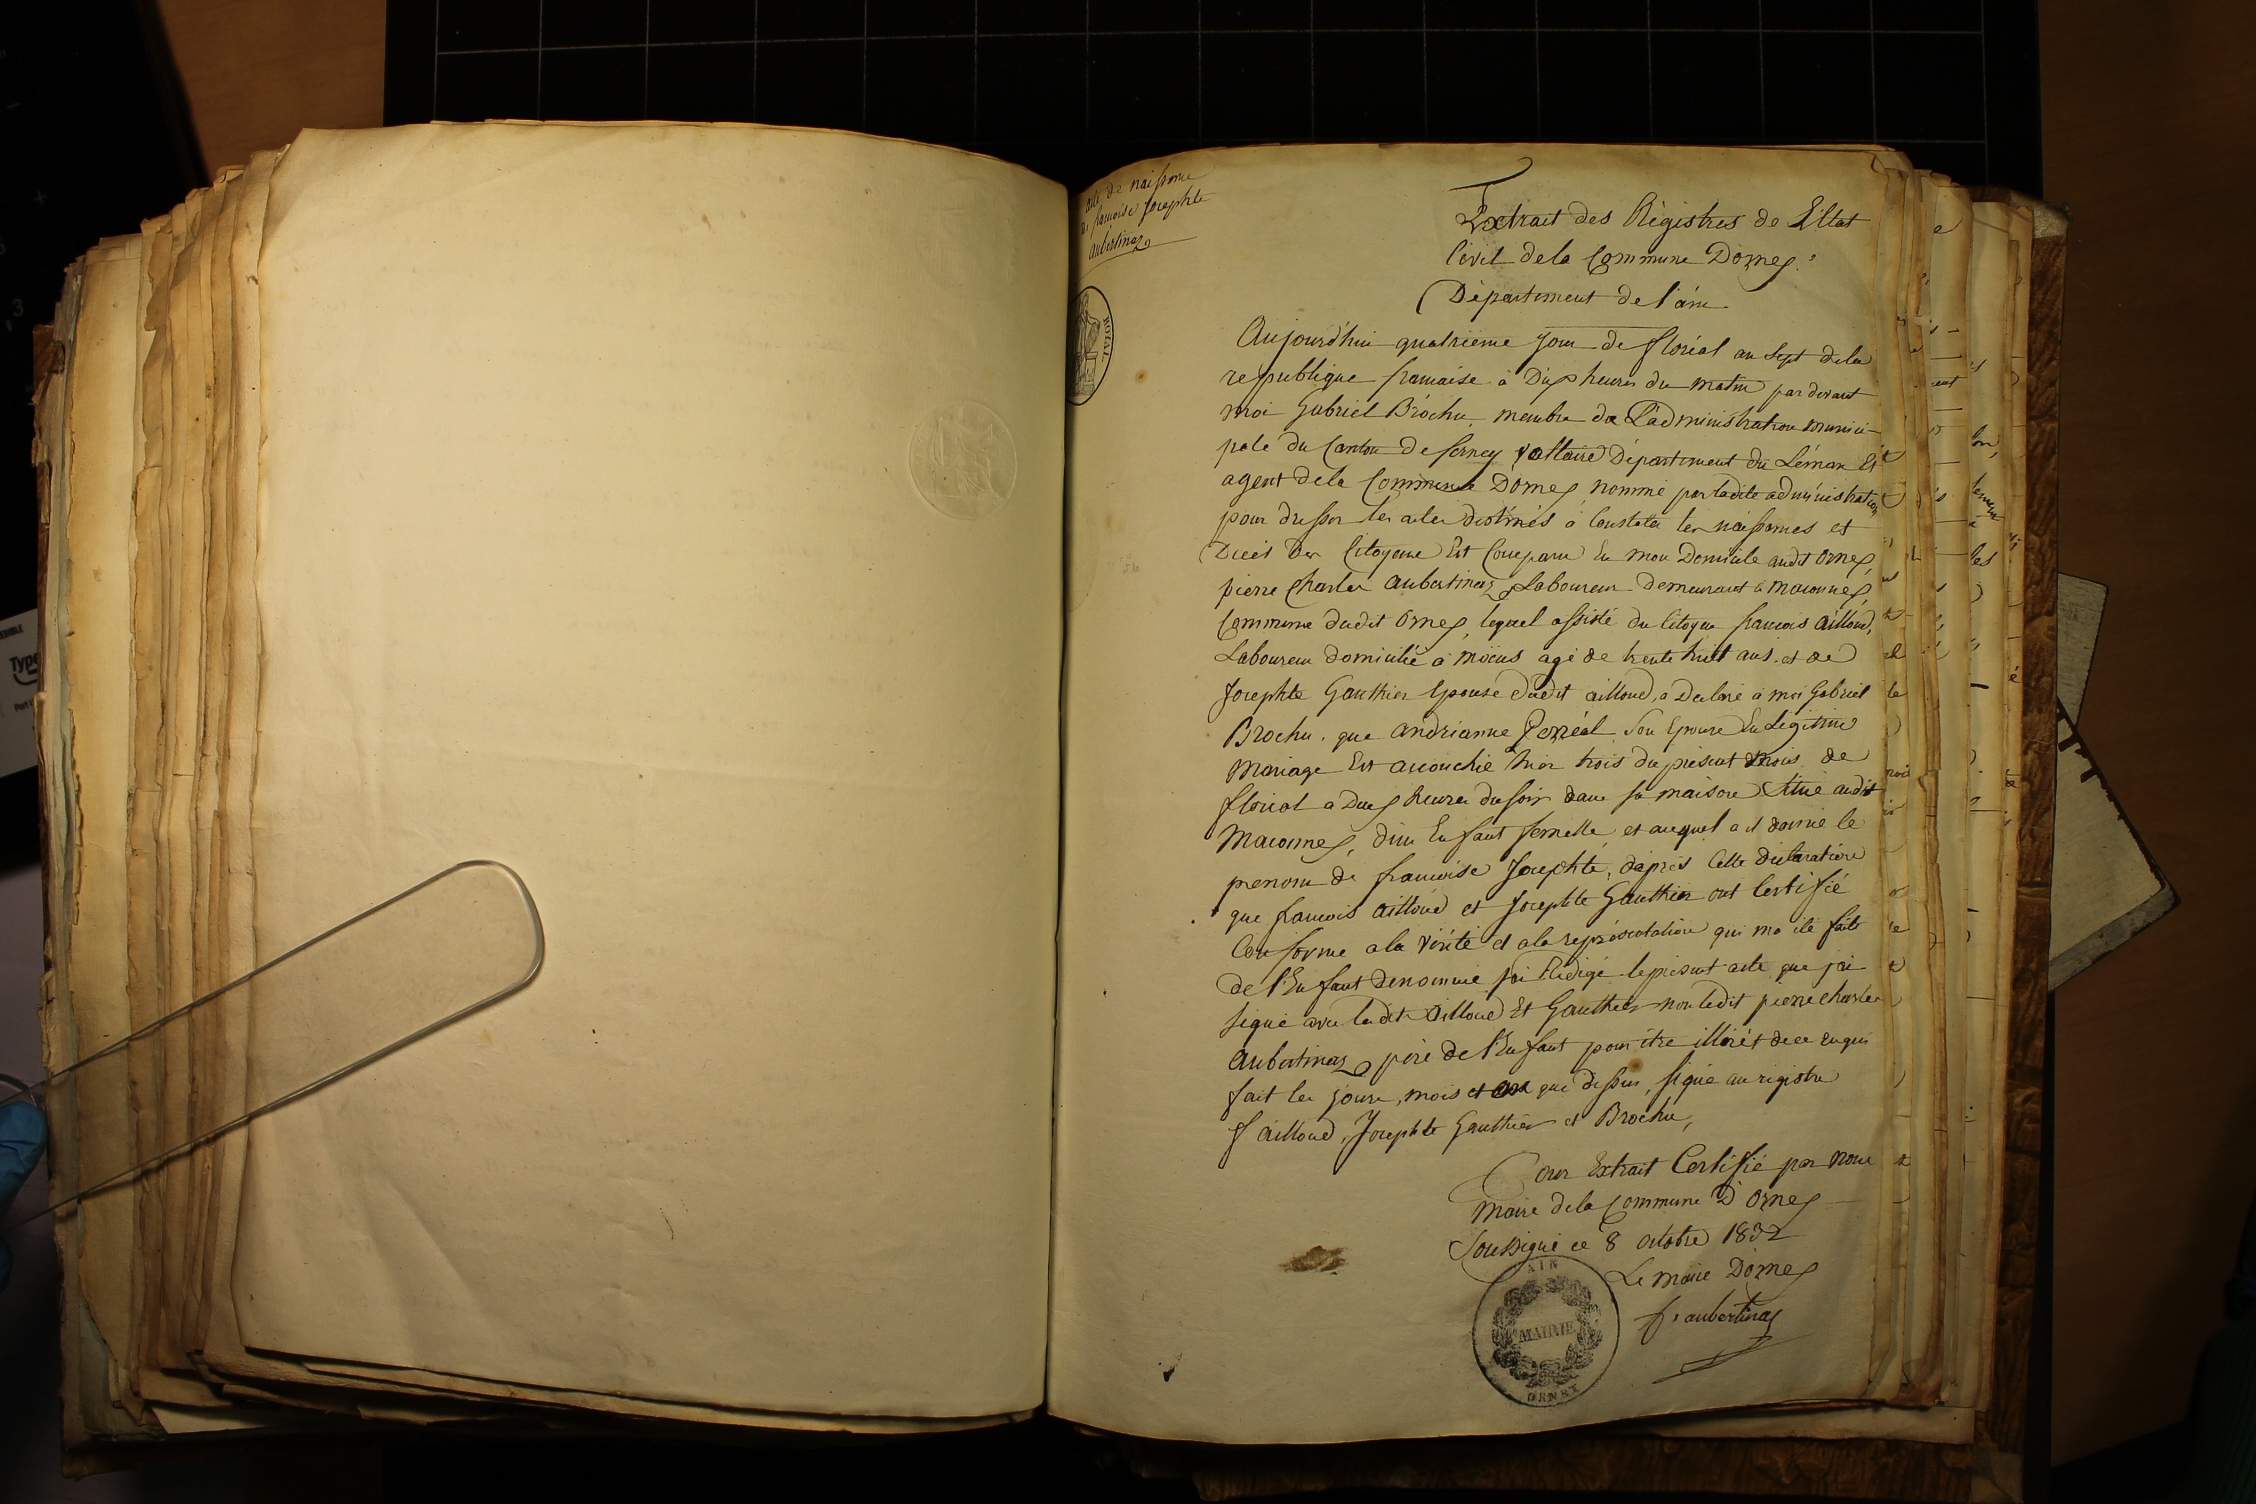 acte de naissance
de francoise Josephte
Aubertinaz
ROYAL
Extrait des Régistres de l'Etat
Civil dela Commune Dornex.
Département de l'ain
Aujourd'hui quatrieme jour de floréal an sept dela
republique francaise à Dix heures du matin par devant
moi Gabriel Brochu, membre de L'administration munici-
pale du Canton de ferney voltaire Département du Léman Et
agent dela Commune Dornex nommé par ladite administration
pour dresser les actes destinés à Constater les naissances et
Décès des Citoyens Est Comparu En mon Domicile audit Ornex
pierre Charles Aubertinaz Laboureur demeurant à maconnex,
Commune dudit Ornex, lequel assisté du Citoyen francois Ailloud,
Laboureur domicilié à moëns agé de trente huit ans et de
Josephte Gauthier Epouse dudit ailloud, a Declaré à moi Gabriel
Brochu, que andrianne Perréal Son Epouse En Legitime
Mariage Est accouchée hier trois du présent mois de
floréal a Dix heures du soir dans sa maison Situé audit
Maconnex, d'un Enfant femelle, et auquel a il donné le
prenom de francoise Josephte, d'après Cette déclaration
que francois Ailloud et Josephte Gauthier ont Certifié
Conforme a la vérité et a la représentation qui ma été faite
de l'Enfant denommé j'ai Rédigé le présent acte que j'ai
signé avec ledit Ailloud Et Gauthier non ledit pierre charles
Aubertinaz père de l'Enfant pour être illirét de ce enquis
fait les jours, mois et an que dessus, signé au registre
f Ailloud, Josephte Gauthier et Brochu,
Pour Extrait Certifié par nous
maire dela Commune D'Ornex
Soussigné ce 8 octobre 1832
Le maire Dornex
fs aubertinaz
AIN
MAIRIE
ORNEX